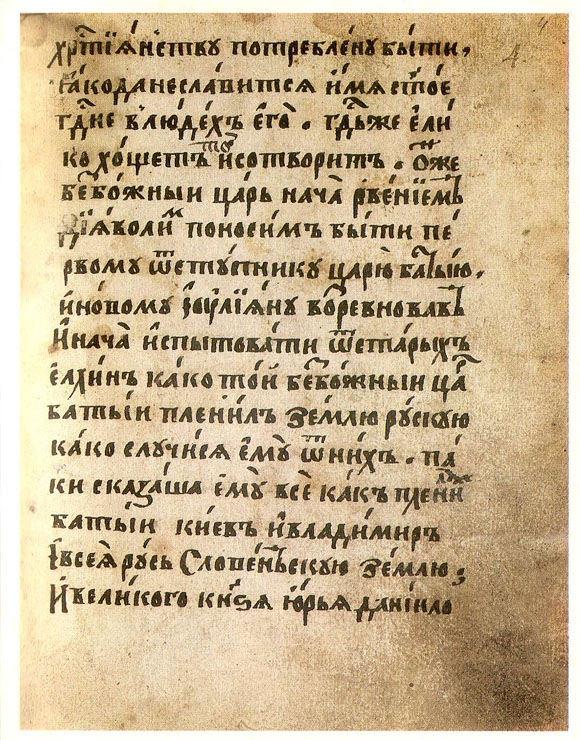 4
хрⷭ҇тїѧ́нству потреблену̀ бы́ти,
ꙗ҆́кода неславится и҆́мѧ ст҃о́е
гд҇не влю́дехъ е҆гѡ̀ . гд҇ьже е҆ли́
ко хо́щетъ то̀ исотвори́тъ . Ѻ҆́же
безбо́жныи ца́рь нача́ рве́нїемъ
дїѧ́волим поноси́мъ бы́ти пе́
рвому ѿсту́пнику царю̀ баты́ю,
и҆но́вому і҆оулїѧ́ну воревнова́въ
И҆нача́ и҆спытова́ти ѿста́рыхъ
е҆́лхинъ ка́ко то́й безбо́жныи ца́р
баты́и плени́лъ зе́млю ру́скую
ка́ко случи́сѧ е҆мꙋ̀ ѿни́хъ . па́
ки сказа́ша е҆мꙋ̀ всѐ ка́къ плени́
баты́и кі́евъ и҆влади́миръ
І҆всеѧ̀ ру́сь Слове́ньскую зе́млю;
И҆вели́кого кн҃ѕя ю҆́рья дани́ло